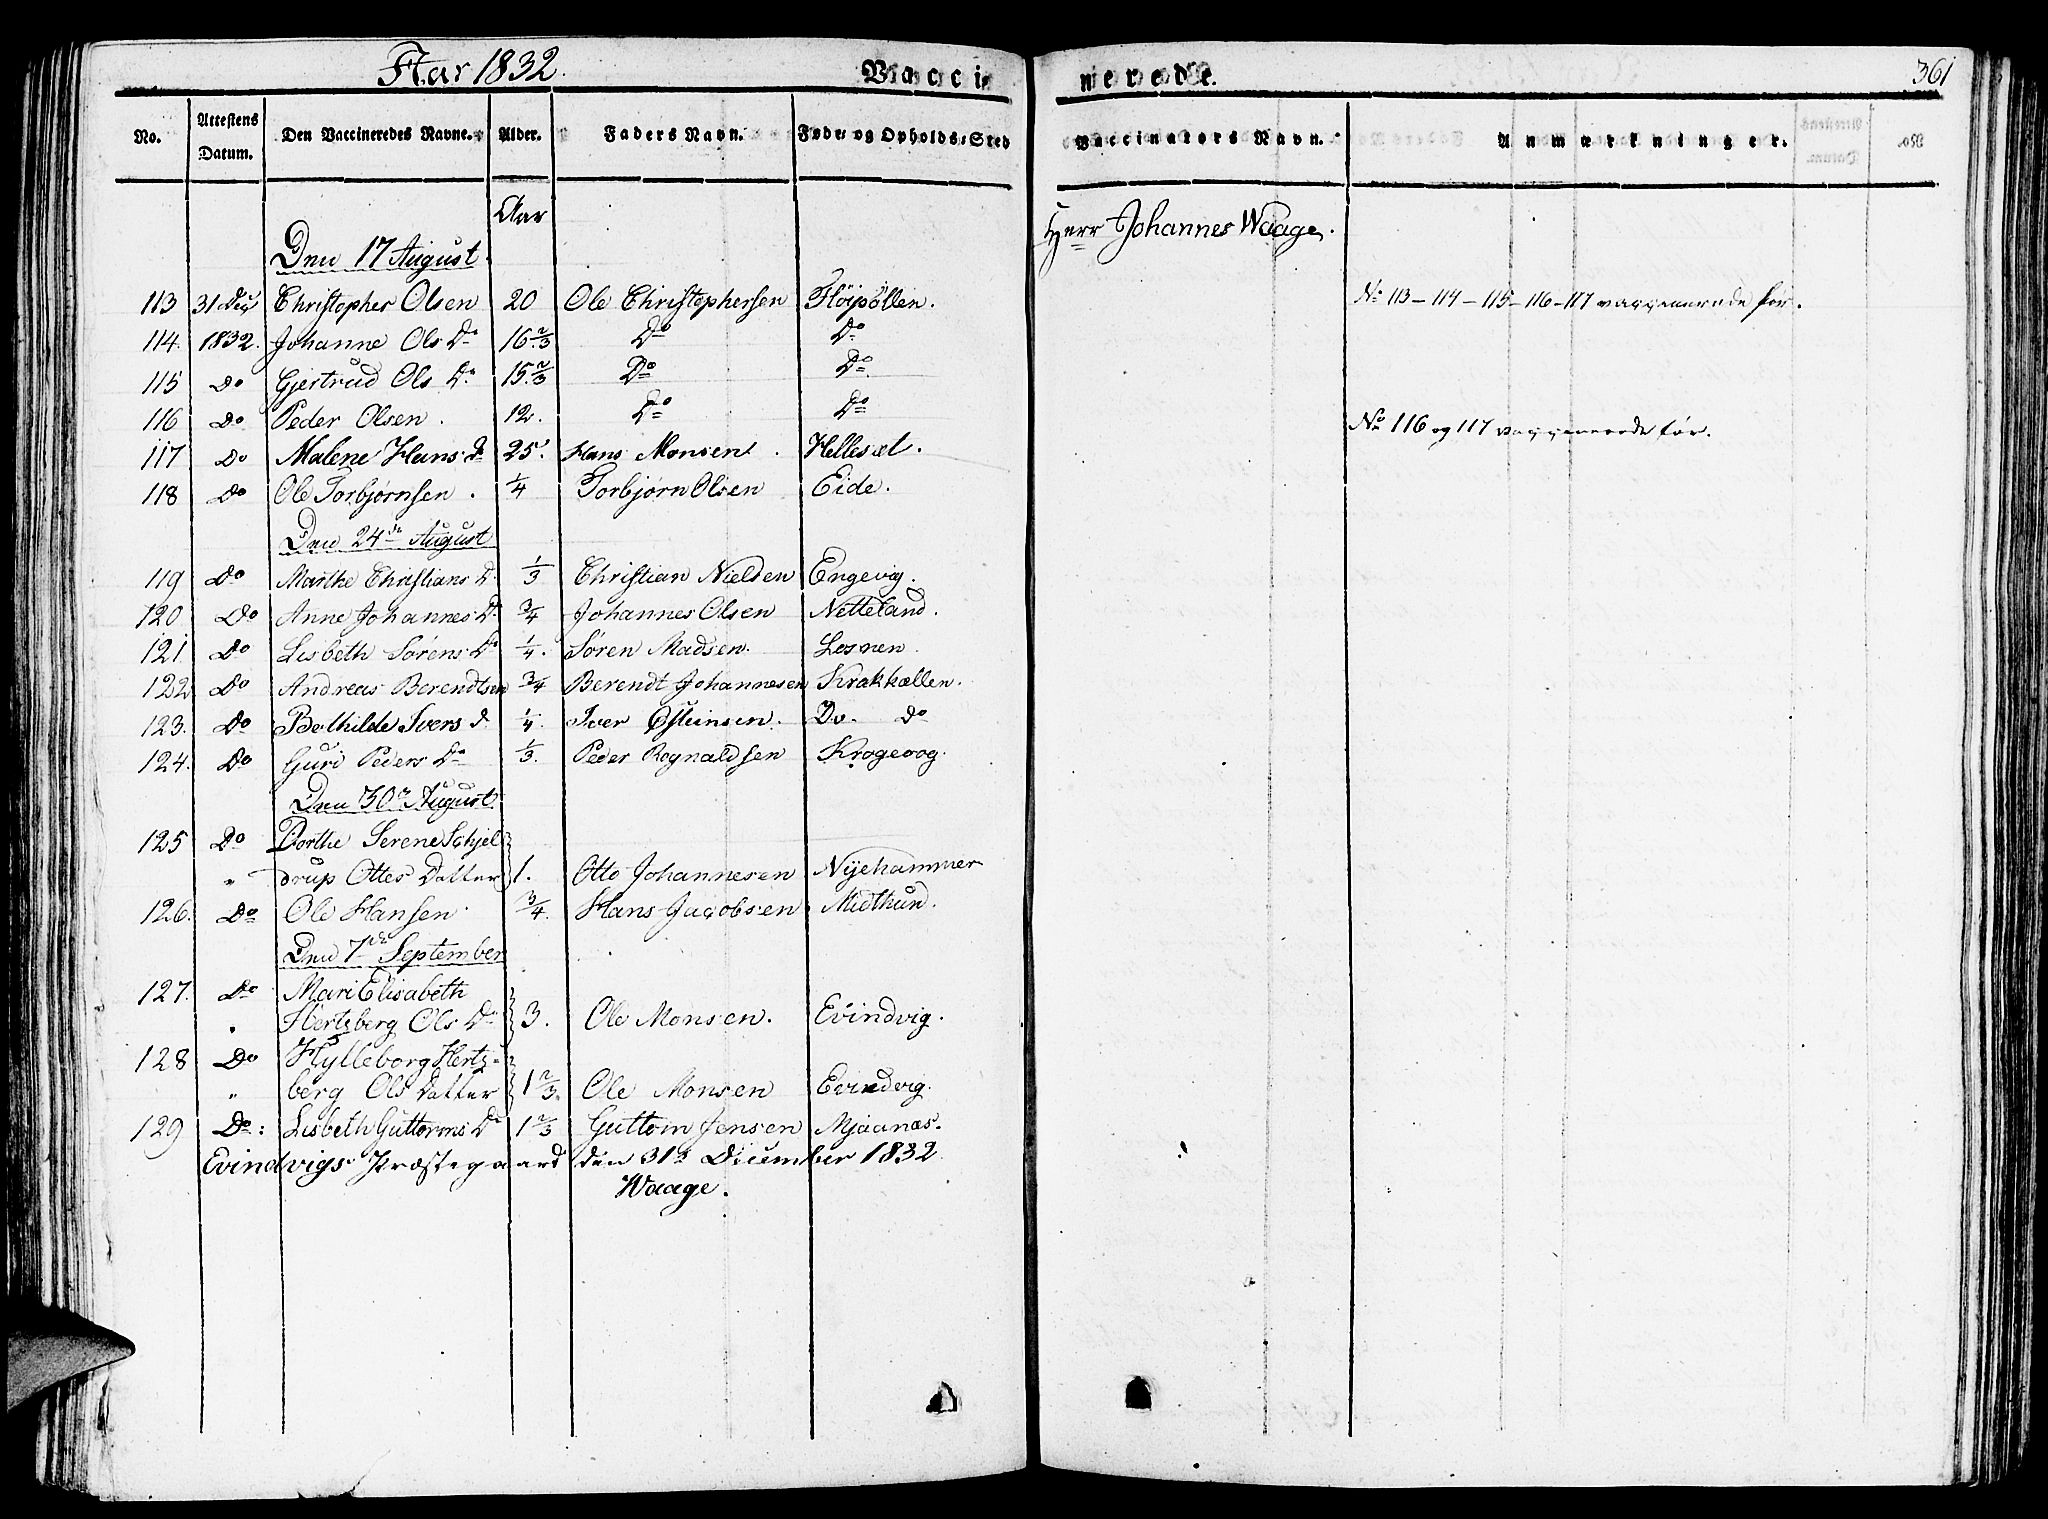 Aar 1832. Vaccinerede. 361
No. Attestens Datum. Den Vaccineredes Navne. Alder. Faders Navn. Føde- og Opholds-Sted Vaccinateurs Navn. Anmærkninger.
Aar
Herr Johannes Waage.
Den 17 August
113 31 Dec Christopher Olsen 20 Ole Christophersen Flöipollen. No 113 - 114 - 115 - 116 - 117 vaccenerede før.
114. 1832. Johanne Ols Dr 16 2/3 Do Do
115 Do Gjertrud Ols Dr 15 2/3 Do Do.
116 Do Peder Olsen. 12. Do Do
No 116 og 117 vaccenerede før.
117 Do Malene Hans d 25. Hans Monsen. Hellesæt.
118 Do Ole Torbjørnsen. 1/4 Torbjørn Olsen Eide.
Den 24de August
119 Do Marthe Christians D. 1/3 Christian Nielsen Engevig.
120 Do Anne Johannes D. 3/4 Johannes Olsen Netteland.
121 Do Lisbeth Sørens Dr 1/4. Søren Madsen. Losnen.
122 Do Andreas Berendtsen 3/4 Berendt Johannesen Krakhællen.
123. Do Bothilde Ivers d. 1/4. Iver Østeinsen. Do. do
124. Do Guri Peders Dr 1/3. Peder Rognaldsen Krogevog.
Den 30te August
125 Do Dorthe Serene Schjel
" drup Ottes Datter 1. Otto Johannesen Nyehammer
126. Do Ole Hansen 3/4. Hans Jacobsen Midthun.
Den 7de September
127. Do Mari Elisabeth
" Hertzberg Ols Dr 3. Ole Monsen. Evindvig.
128 Do Hylleborg Hertz-
" berg Ols Datter 1 2/3. Ole Monsen Evindvig.
129 Do: Lisbeth Guttorms Dr 1 2/3 Guttom Jensen Mjaanæs.
Evindvigs Præstegaard den 31te December 1832.
Waage.